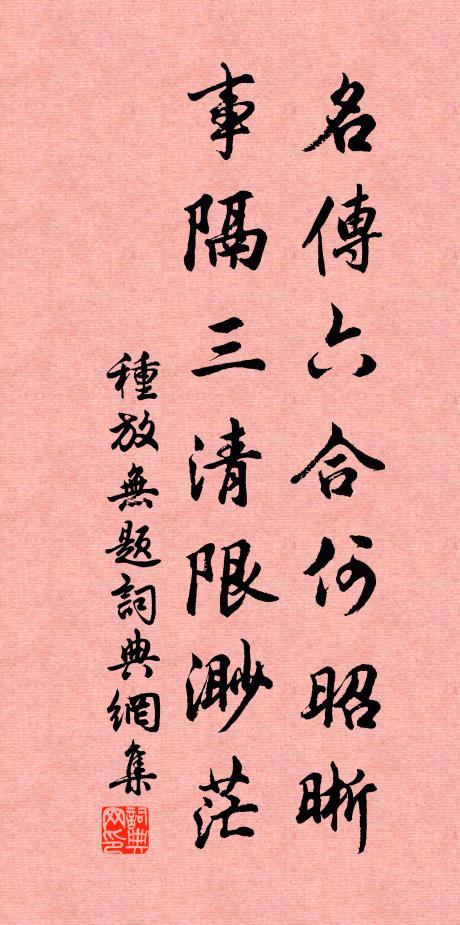 名傳六合何昭晰
事隔三清限渺茫
種放無題詞典網集
詞典网印